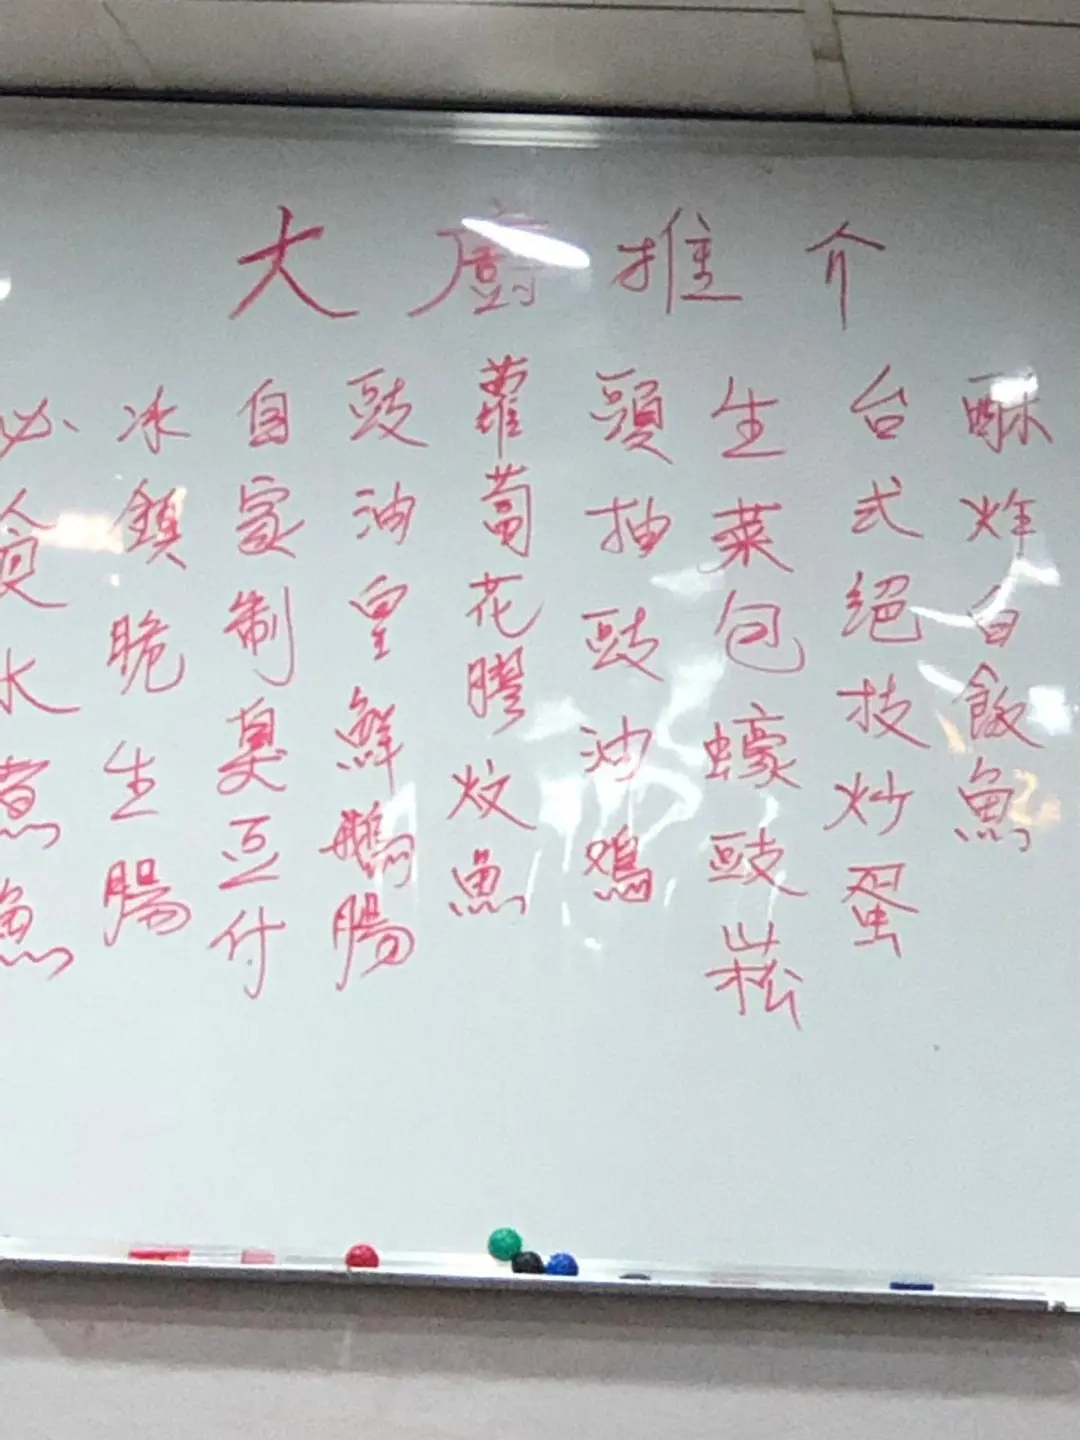 大廚推介
酥炸白飯魚
台式絕技炒蛋
生菜包蠔豉崧
頭抽豉油鷄
蘿蔔花膠炆魚
豉油皇鮮鵝腸
自家制臭豆付
冰鎮脆生腸
必食水煮魚